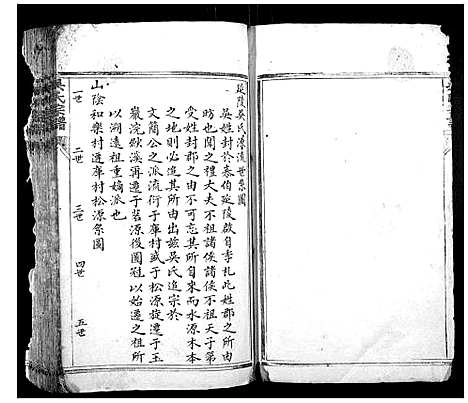 延陵吳氏源流世系圖
吳姓封於泰伯延陵啟自季札此姓郡之所由
昉也聞之禮大夫不祖諸侯諸侯不祖天子第
受姓封郡之由亦不可忘其所自來而水源木本
之地則必追其所由出茲吳氏追宗於
文簡公之派流衍于庫村或于松源旋遷于玉
巖浣歟溪再遷于茗源後圖冠以始遷之祖所
以溯遠祖重嫡派也
山陰和樂村遷庫村松源系圖
一世
二世
三世
四世
五世
吳氏宗譜